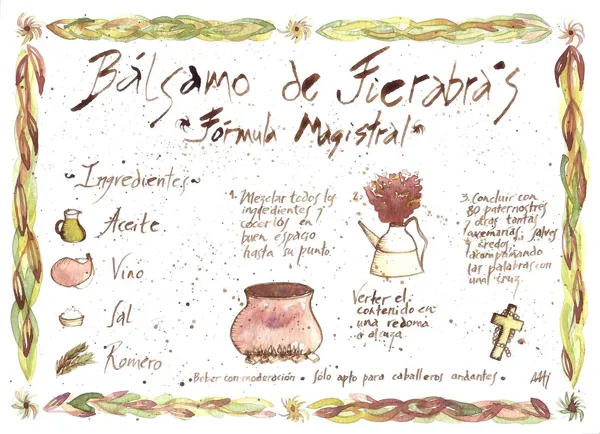 Bálsamo de Fierabrás
Fórmula Magistral
Ingredientes
Aceite
Vino
Sal
Romero
1. Mezclar todos los
ingredientes y
cocerlos en
buen espacio
hasta su punto.
2.
Verter el
contenido en
una redoma
o alcuza.
3. Concluir con
80 paternostres
y otras tantas
avemarías, salves
y credos
acompañando
las palabras con
una cruz.
• Beber con moderación • Sólo apto para caballeros andantes •